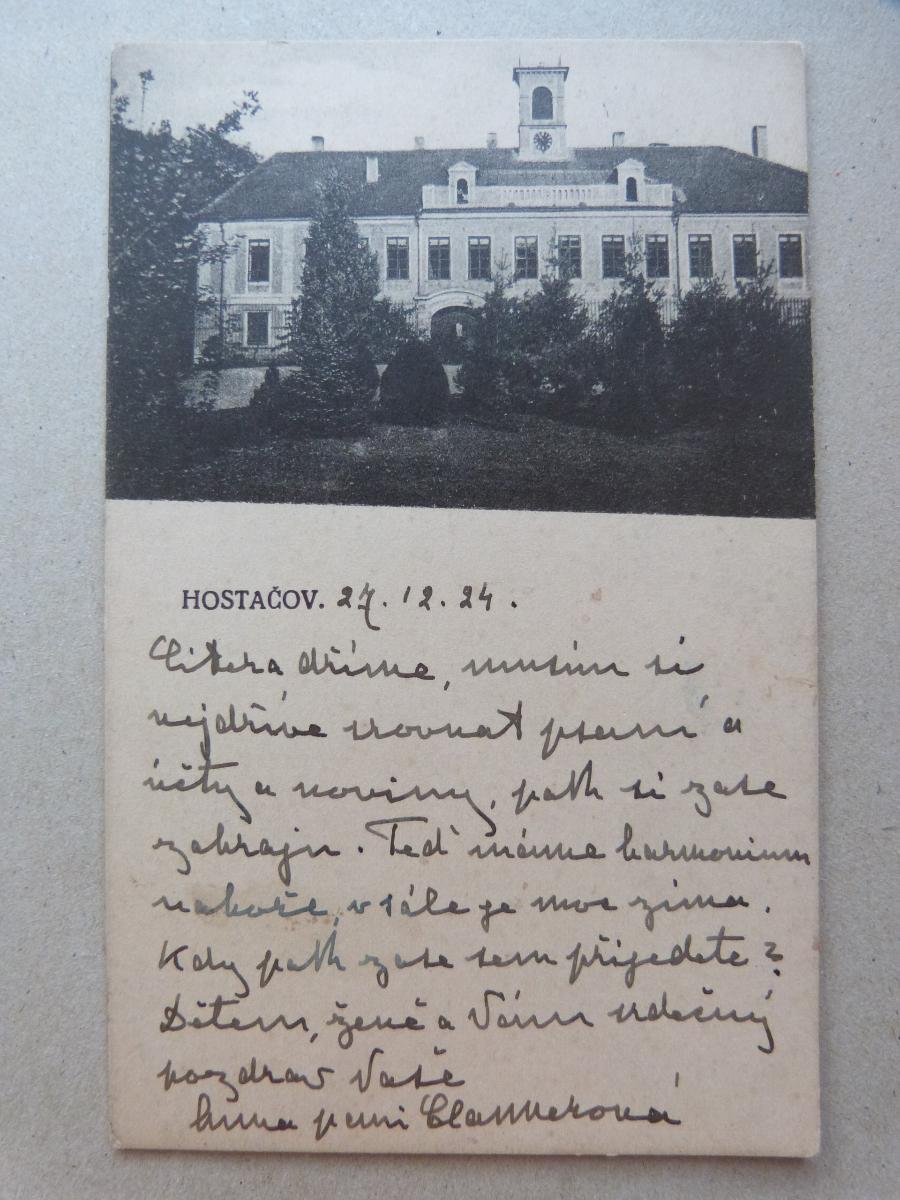 HOSTAČOV. 27.12.24.
Citera dříme, musím si
nejdříve srovnat psaní a
účty a noviny, pak si zase
zahraju. Teď máme harmonium
nahoře, v sále je moc zima.
Kdy pak zase sem přijedete?
Dětem, ženě a Vám srdečný
pozdrav Vaše
Anna